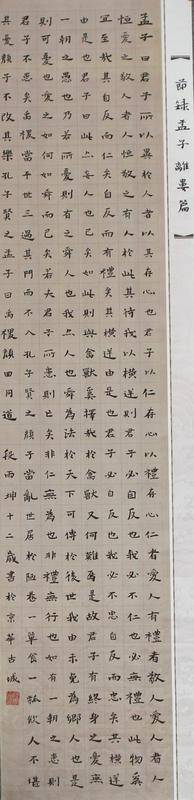 節錄孟子離婁篇
孟子曰君子所以異於人者以其存心也君子以仁存心以禮存心仁者愛人有禮者敬人愛人者人
恒愛之敬人者人恒敬之有人於此其待我以橫逆則君子必自反也我必不仁也必無禮也此物奚
宜至哉其自反而仁矣自反而有禮矣其橫逆由是也君子必自反也我必不忠自反而忠矣其橫逆
由是也君子曰此亦妄人也已矣如此則與禽獸奚擇哉於禽獸又何難焉是故君子有終身之憂無
一朝之患也乃若所憂則有之舜人也我亦人也舜為法於天下可傳於後世我由未免為鄉人也是
則可憂也憂之如何如舜而已矣若夫君子所患則亡矣非仁無為也非禮無行也如有一朝之患則
君子不患矣禹稷當平世三過其門而不入孔子賢之顏子當亂世居於陋巷一簞食一瓢飲人不堪
其憂顏子不改其樂孔子賢之孟子曰禹稷顏回同道 段雨坤十二歲書於京華古城